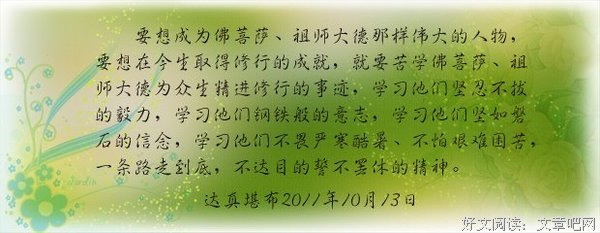 要想成为佛菩萨、祖师大德那样伟大的人物，
要想在今生取得修行的成就，就要苦学佛菩萨、祖
师大德为众生精进修行的事迹，学习他们坚忍不拔
的毅力，学习他们钢铁般的意志，学习他们坚如磐
石的信念，学习他们不畏严寒酷暑、不怕艰难困苦，
一条路走到底，不达目的誓不罢休的精神。
达真堪布2011年10月13日
好文阅读：文章吧网